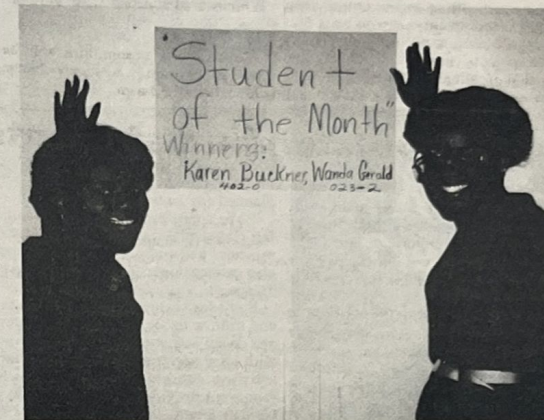 "Student
of the Month"
Winners:
Karen Buckner, Wanda Gerald
402-0 023-2